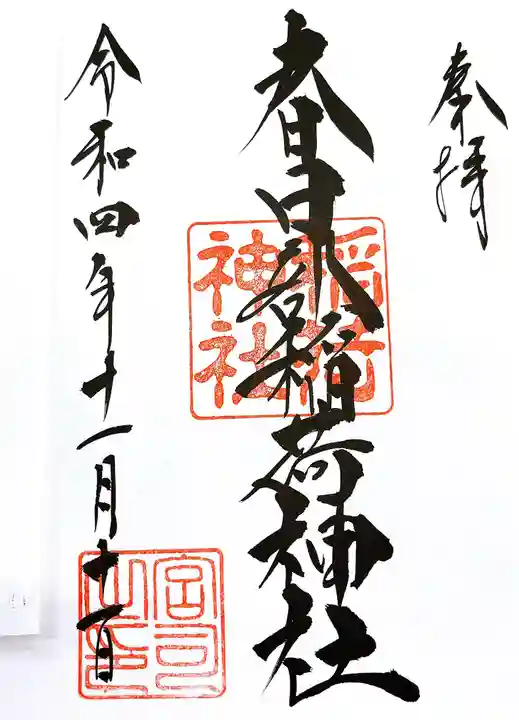 奉拝
春日 稲荷神社
令和四年十一月十一日
稲荷
神社
宮司
之印